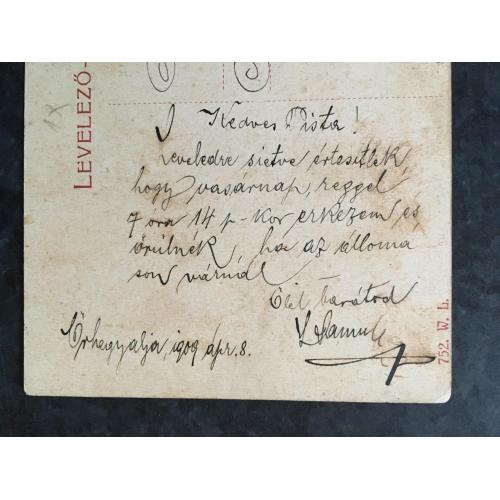 LEVELEZŐ-
Kedves Pista!
Leveledre sietve értesitlek,
hogy vasárnap, reggel
7 óra 14 p-kor erkezem és
örülnék, ha az álloma
son várnál
Ölel barátod
Samu
Őrhegyalja, 1909 ápr. 8.
752. W. L.